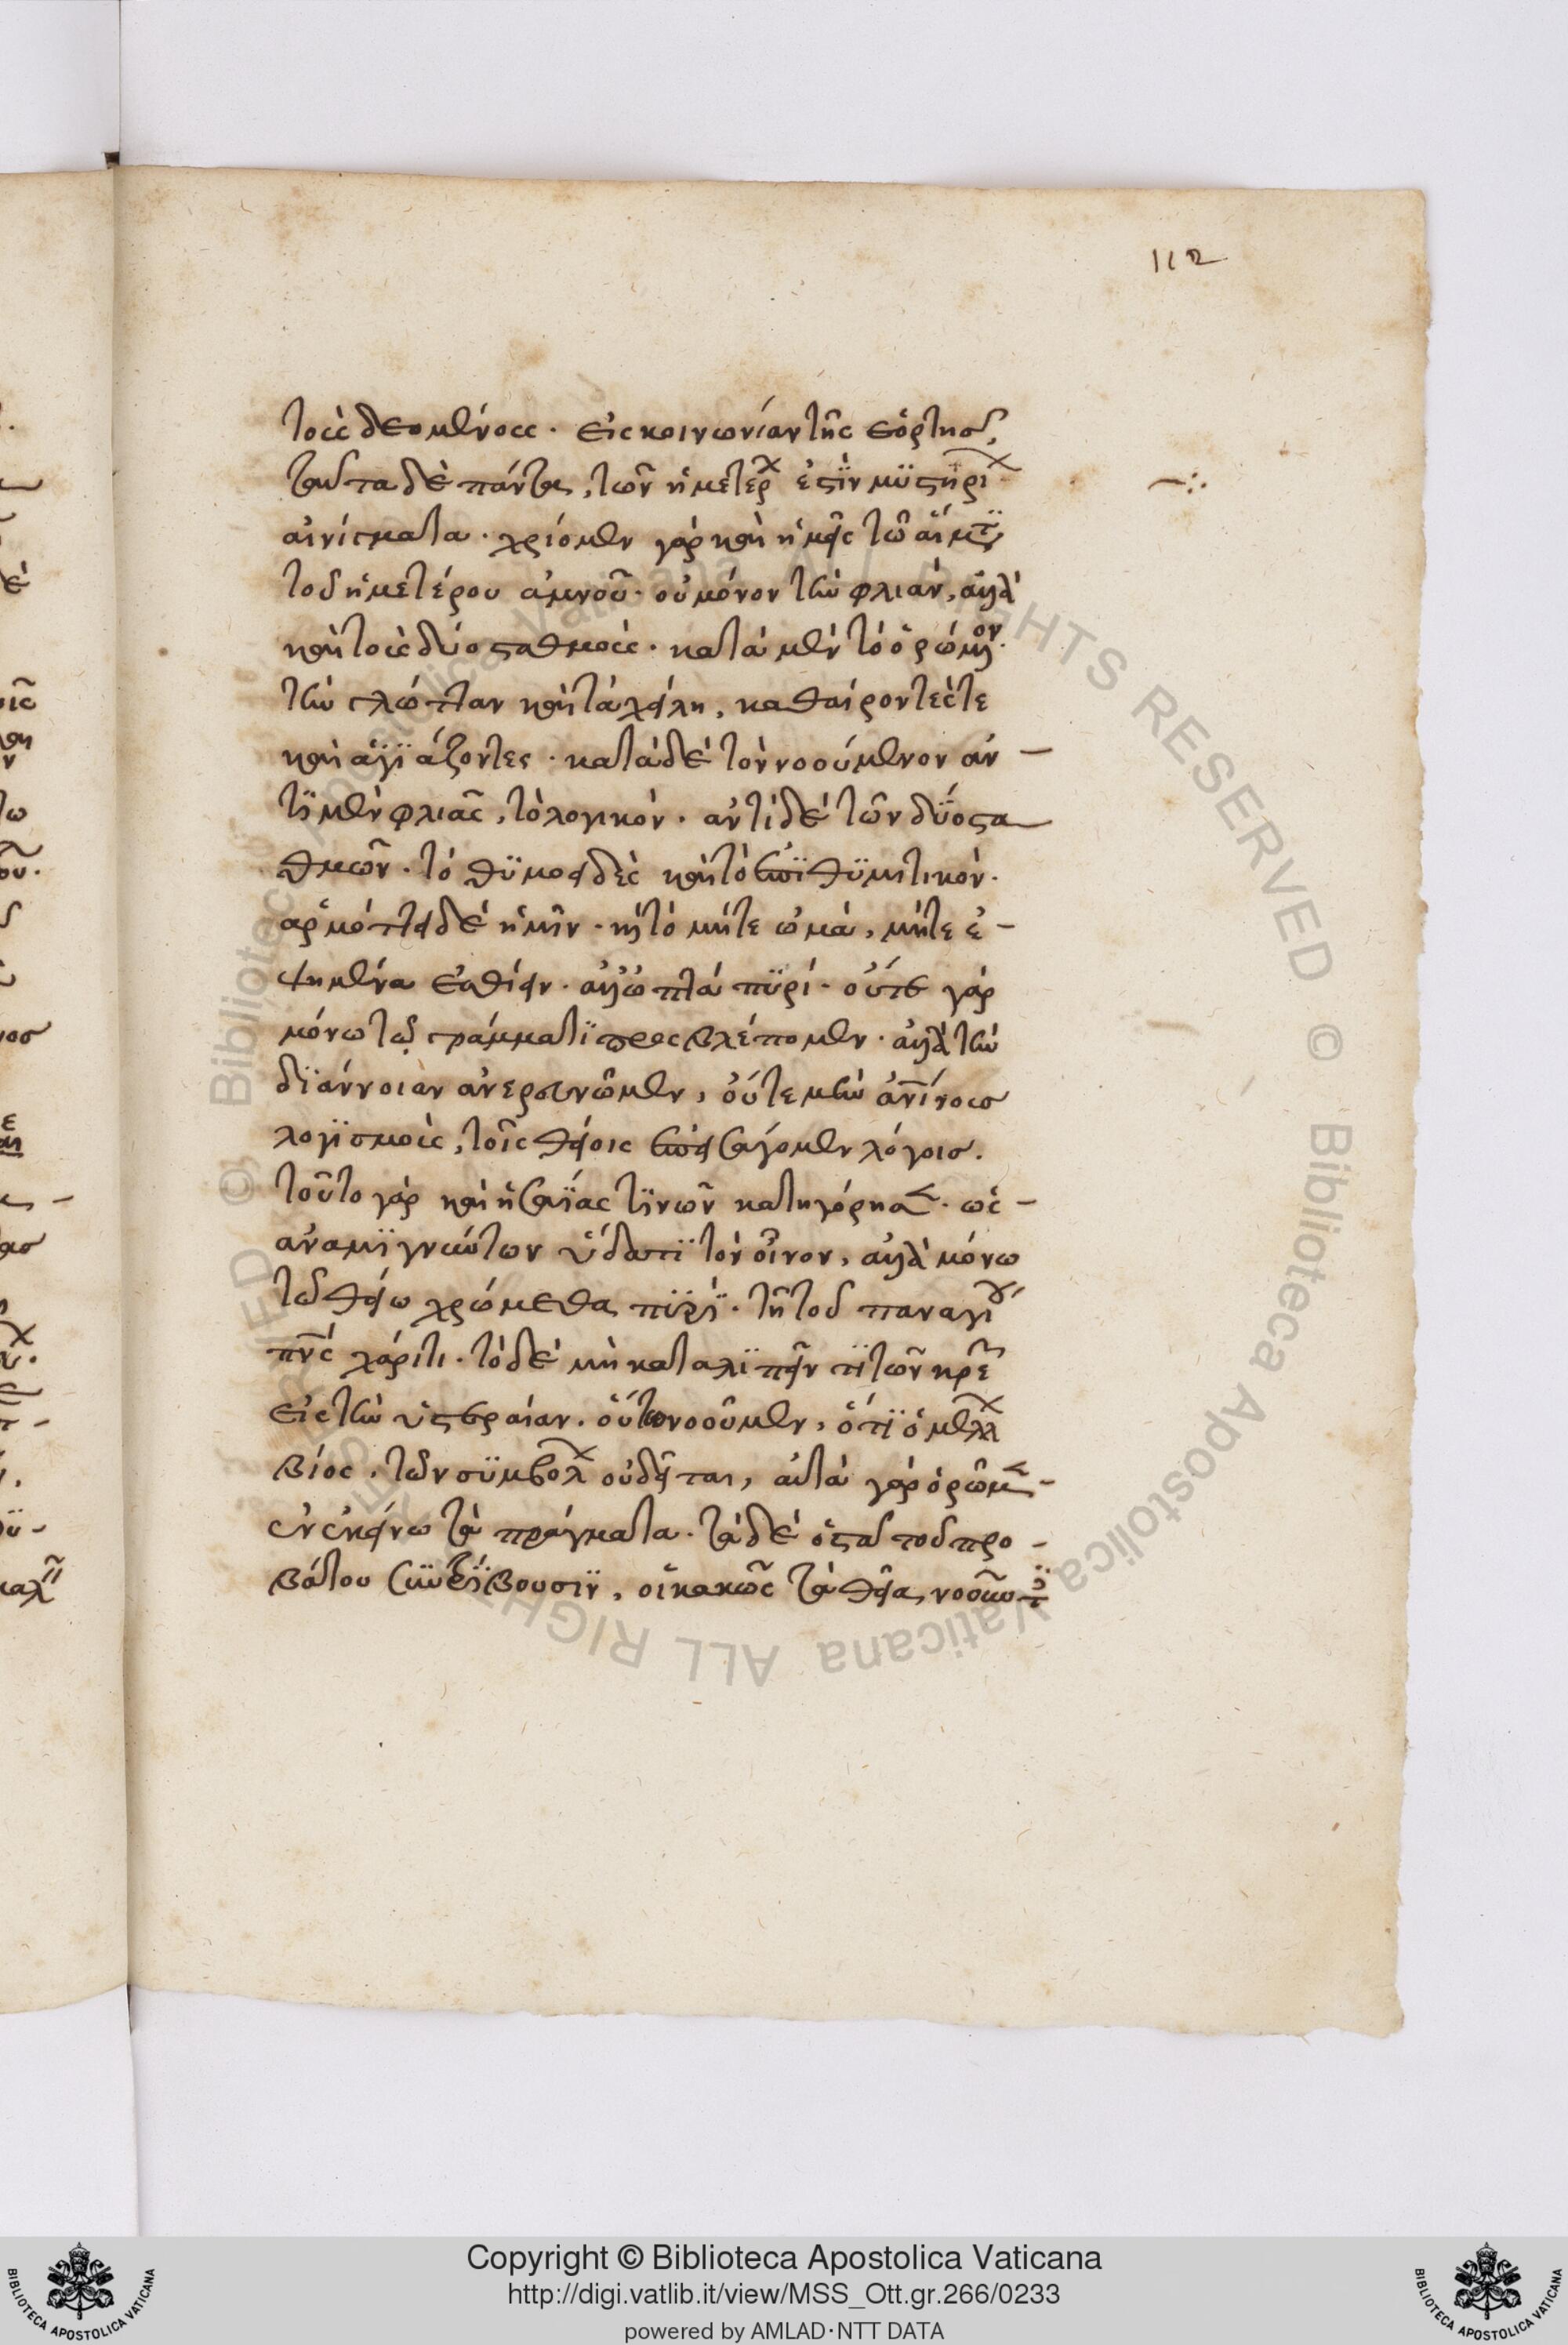 112
τοῖς δεομένοις · εἰς κοινωνίαν τῆς ἑορτῆς,
ταῦτα δὲ πάντα, τῶν ἡμετέρων ἐστὶν μυστηρίων
αἰνίγματα · χρίομεν γὰρ καὶ ἡμεῖς τῷ αἵματι
τοῦ ἡμετέρου ἀμνοῦ · οὐ μόνον τὴν φλιὰν, ἀλλὰ
καὶ τοὺς δύο σταθμοὺς · κατὰ μὲν τὸ ὁρώμενον ·
τὴν γλῶτταν καὶ τὰ χείλη, καθαίροντές τε
καὶ ἁγϊάζοντες · κατὰ δὲ τὸν νοούμενον ἀν–
τῒ μὲν φλιᾶς, τὸ λογικόν · ἀντὶ δὲ τῶν δύο στα
θμῶν · τὸ θυμοειδὲς καὶ τὸ ἐπϊθυμητικόν ·
ἁρμόττει δὲ ἡμῖν · καὶ τὸ μήτε ὠμὰ, μήτε ἑ–
ψημένα ἐσθίειν · ἀλλ' ὀπτὰ πυρί · οὔτε γὰρ
μόνω τῷ γράμματι προσβλέπομεν · ἀλλὰ τὴν
διάννοιαν ἀνερευνῶμεν, οὔτε μὴν ἀνθρωπίνοις
λογισμοῖς, τοῖς θείοις ἐπεισάγομεν λόγοις.
τοῦτο γὰρ καὶ ἡσαΐας τινῶν κατηγόρησεν · ὡς–
ἀναμιγνύντων ὕδατι τὸν οἶνον, ἀλλὰ μόνω
τῷ θείω χρώμεθα πυρὶ · τῇ τοῦ παναγίου
πνς χάριτι · τὸ δὲ μὴ καταλιπεῖν τι τῶν κρεῶν
εἰς τὴν ὑστεραίαν · οὕτω νοοῦμεν, ὅτι ὁ μέλλων
βίος, τῶν συμβόλων οὐ δεῖται, αὐτὰ γὰρ ὁρῶμεν–
ἐν ἐκείνω τὰ πράγματα · τὰ δὲ ὀστᾶ τοῦ προ–
βάτου συντρίβουσιν, οἱ κακῶς τὰ θεῖα, νοοῦντες